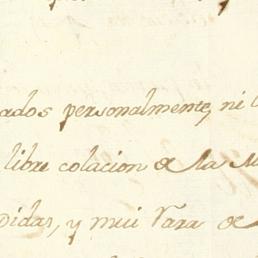 ados personalmente, ni
libre colacion de la
didas, y mui rara de